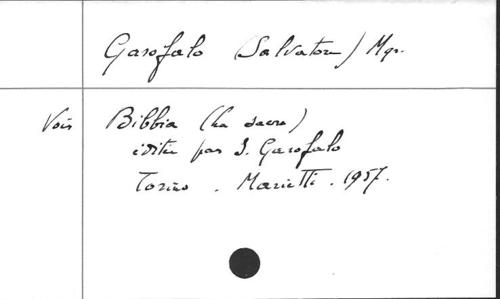 Garofalo (Salvatore) Mgr.
Voir Bibbia (La sacra)
éditée par S. Garofalo
Torino . Marietti . 1957.